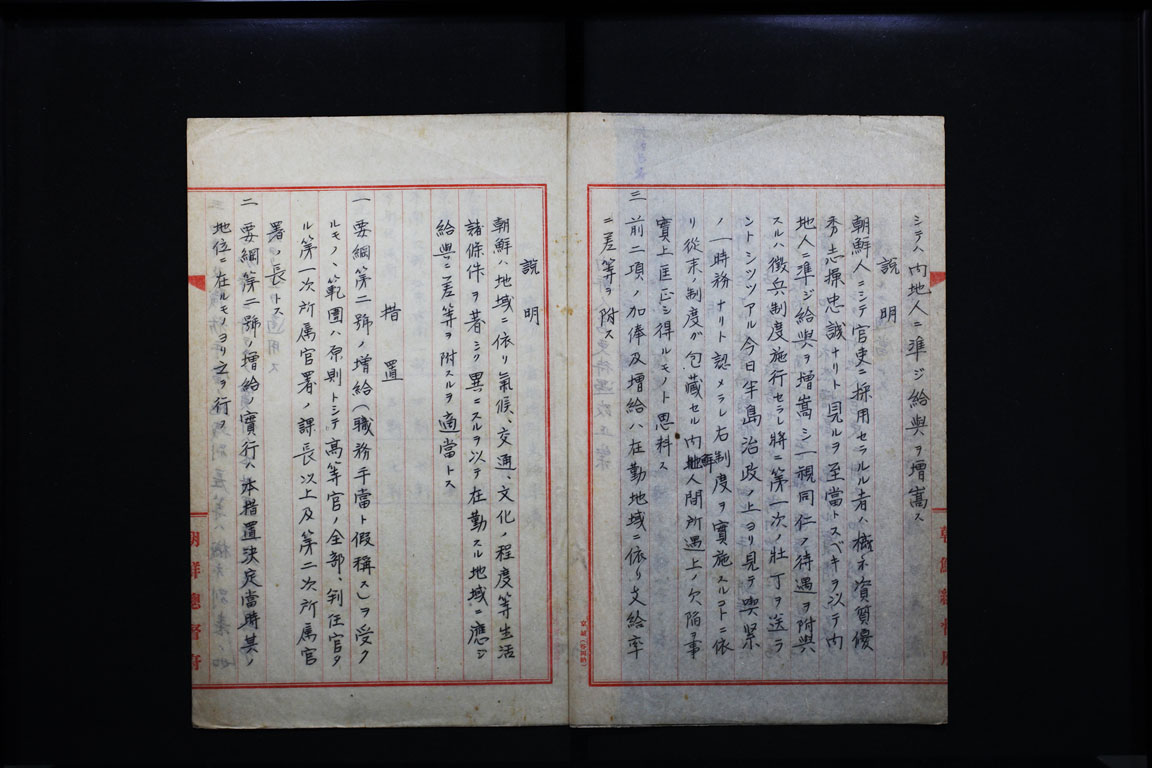 シテハ内地人ニ準ジ給與ヲ增嵩ス
説明
朝鮮人ニシテ官吏ニ採用セラルル者ハ概ネ資質優
秀志操忠誠ナリト見ルヲ至當トスベキヲ以テ内
地人ニ準ジ給與ヲ增嵩シ一視同仁ノ待遇ヲ附與
スルハ徵兵制度施行セラレ將ニ第一次ノ壯丁ヲ送ラ
ントシツツアル今日半島治政ノ上ヨリ見テ喫緊
ノ時務ナリト認メラレ右制度ヲ實施スルコトニ依
リ從來ノ制度ガ包藏セル内鮮人間所遇上ノ欠陷ヲ事
實上匡正シ得ルモノト思料ス
三 前二項ノ加俸及增給ハ在勤地域ニ依リ支給率
ニ差等ヲ附ス
説明
朝鮮ハ地域ニ依リ氣候、交通、文化ノ程度等生活
諸條件ヲ著シク異ニスルヲ以テ在勤スル地域ニ應ジ
給與ニ差等ヲ附スルヲ適當トス
措置
一 要綱第二號ノ增給(職務手當ト假稱ス)ヲ受ク
ルモノノ範圍ハ原則トシテ高等官ノ全部、判任官タ
ル第一次所属官署ノ課長以上及第二次所属官
署ノ長トス
二 要綱第二號ノ增給ノ實行ハ本措置決定當時其ノ
地位ニ在ルモノヨリ之ヲ行フ
朝鮮總督府